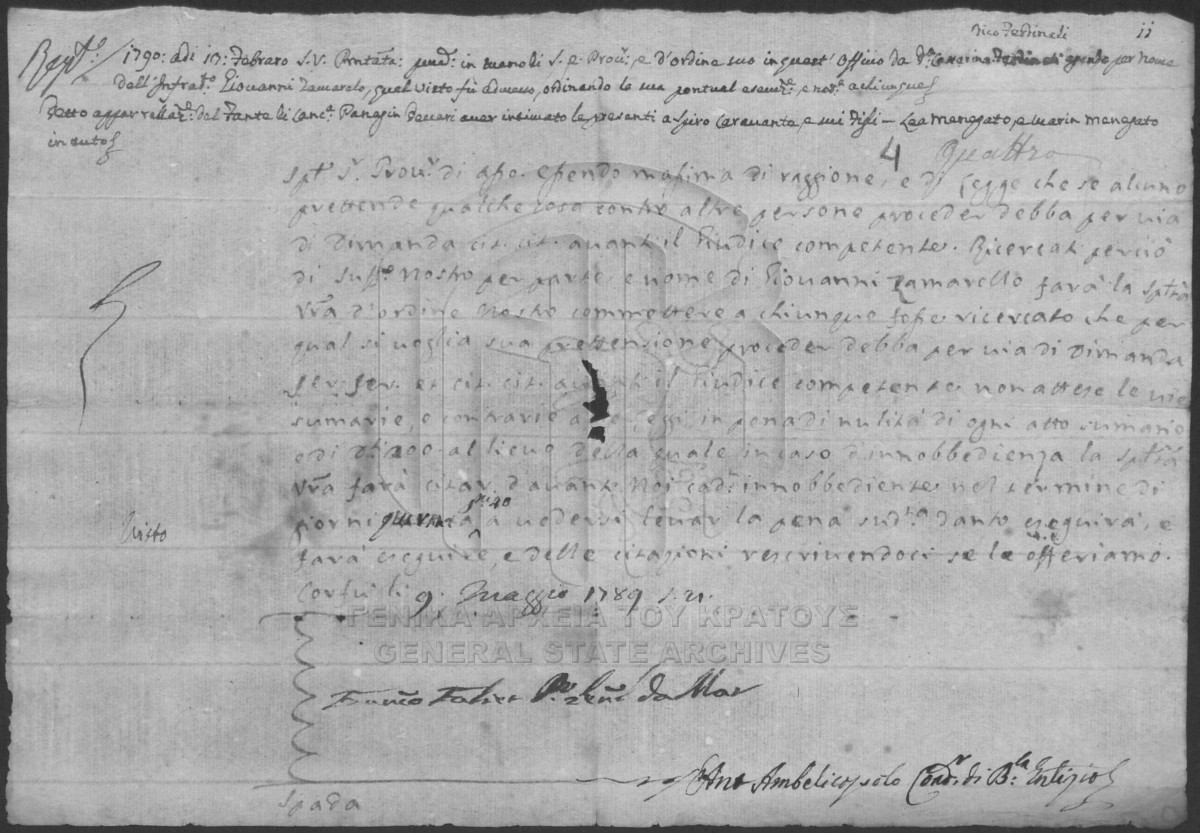 11
Regta 1790: adi 17: Febraro S.V. Pntata: in mano di S. E. Prov:r e d'ordine suo in quest' Officio da per Nome
dall' Infratto: Giovanni Zamarelo, qual visto fù admesso, ordinando la sua pontual
Detto appar del Fante di Canc:a Panagin aver intimato le presenti a Spiro Caravanta, e sui Figli - Lea Menegato, e Marin Menegato
in auto
4 Quattro
Spt: S:r Prov:r di Essendo massima di raggione, e di Legge che se alcuno
prettende qualche cosa contro altre persone proceder debba per via
di Dimanda cit. cit. avanti il Giudice competente. Ricercati perciò
di Nostro per parte, e nome di Giovanni Zamarello farà la Sptta
Vra d'ordine Nostro commettere a chiunque fosse ricercato che per
qual si voglia sua prettensione proceder debba per via di Dimanda
et cit. cit. avanti il Giudice competente, non attese le vie
sumarie, e contrarie Leggi in pena di nulità di ogni atto sumario
e di 200 al lievo della quale in caso d'innobbedienza la Sptta
Vra farà citar d'avanti Noi innobbediente nel termine di
giorni quaranta 40 a vedersi levar la pena sud:a Tanto esseguirà, e
Visto
farà esseguire, e delle citazioni rescrivendoci se le offeriamo.
Corfù li 9. Maggio 1789 S.N.
Franco Falier P. Gen. da Mar
Ambelicopolo di B:la
Spada
ΓΕΝΙΚΑ ΑΡΧΕΙΑ ΤΟΥ ΚΡΑΤΟΥΣ
GENERAL STATE ARCHIVES